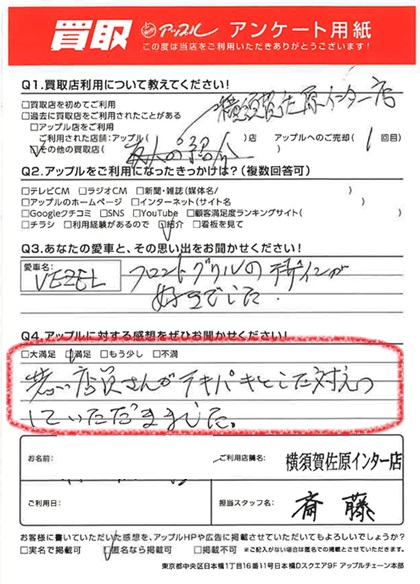 買取 アップル アンケート用紙
この度は当店をご利用いただきありがとうございます!
Q1.買取店利用について教えてください!
横須賀佐原インター店
□買取店を初めてご利用
□過去に買取店をご利用されたことがある
□アップル店をご利用
ご利用された店舗:アップル( )店 アップルへのご売却( 1 回目)
☑その他の買取店( 友人の紹介 )
Q2.アップルをご利用になったきっかけは?(複数回答可)
□テレビCM □ラジオCM □新聞・雑誌(媒体名/ )
□アップルのホームページ □インターネット(サイト名 )
□Googleクチコミ □SNS □YouTube □顧客満足度ランキングサイト( )
□チラシ □利用経験があるので ☑紹介 □看板を見て
Q3.あなたの愛車と、その思い出をお聞かせください!
愛車名: VEZEL フロントグリルのデザインが
好きでした.
Q4.アップルに対する感想をぜひお聞かせください!
□大満足 ☑満足 □もう少し □不満
若い店員さんがテキパキとした対応を
していただきました。
お名前: ご利用店舗名: 横須賀佐原インター店
ご利用日: 担当スタッフ名: 斎藤
お客様に書いていただいた感想を、アップルHPや広告に掲載させていただいてもよろしいでしょうか?
□実名で掲載可 ☑匿名なら掲載可 □掲載不可 ※ご記入がない場合は匿名での掲載とさせていただきます。
東京都中央区日本橋1丁目16番11号日本橋Dスクエア9F アップルチェーン本部